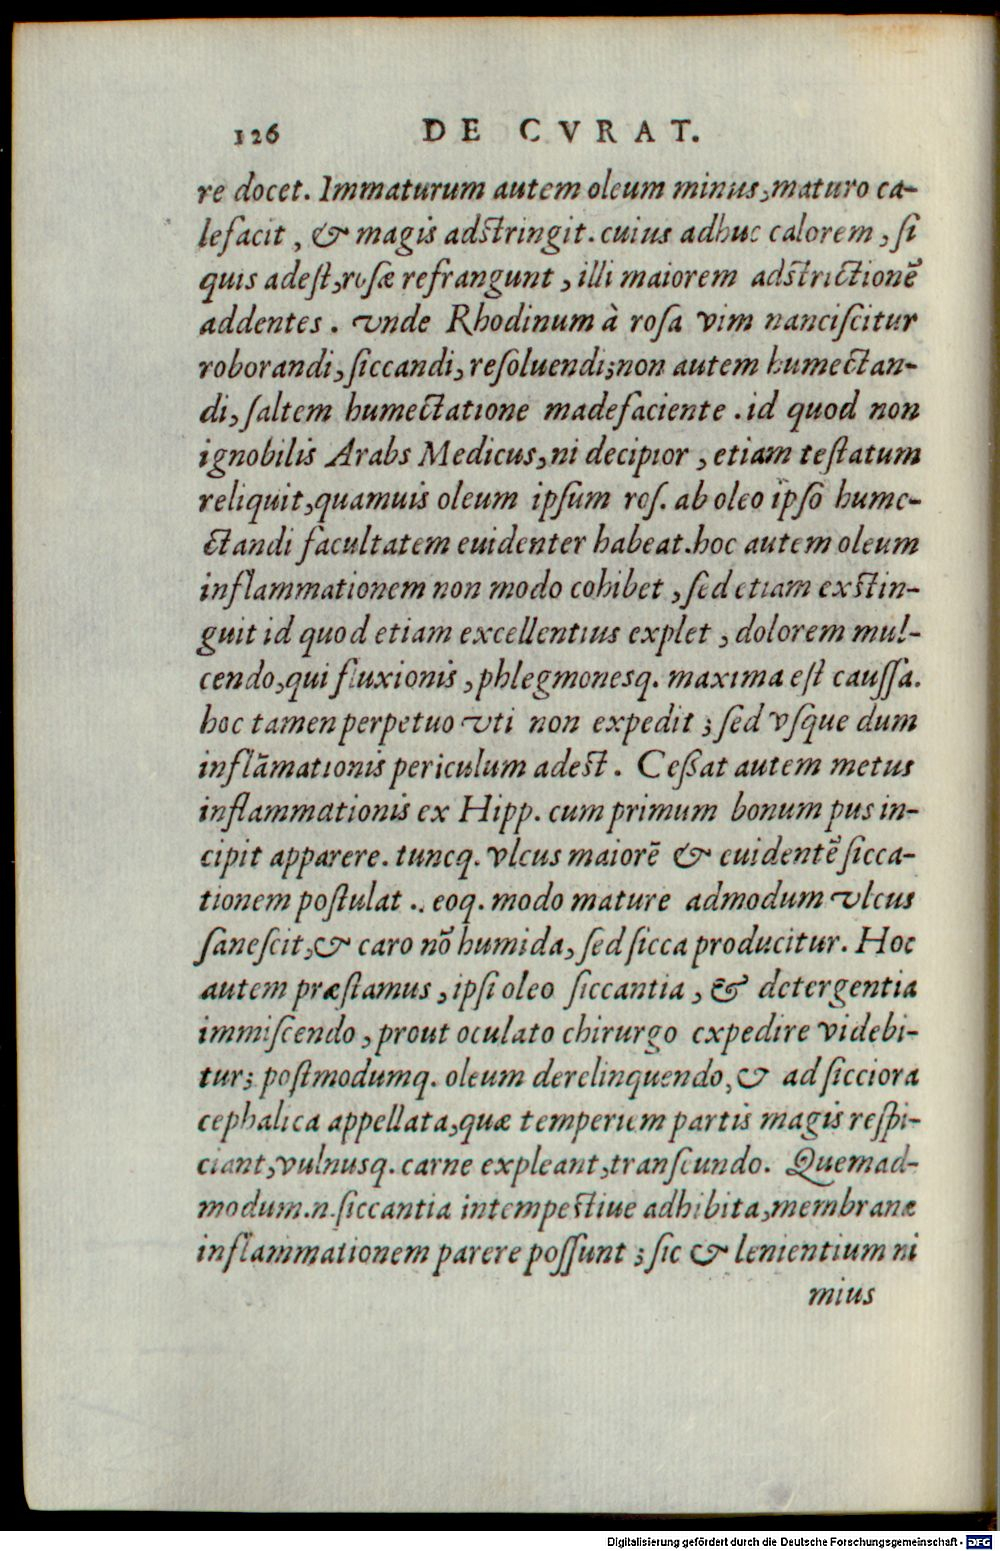 126 DE CVRAT.
re docet. Immaturum autem oleum minus, maturo ca-
lefacit, & magis adstringit. cuius adhuc calorem, si
quis adest, rosæ refrangunt, illi maiorem adstrictionē
addentes. vnde Rhodinum à rosa vim nanciscitur
roborandi, siccandi, resoluendi; non autem humectan-
di, saltem humectatione madefaciente. id quod non
ignobilis Arabs Medicus, ni decipior, etiam testatum
reliquit, quamuis oleum ipsum ros. ab oleo ipso hume-
ctandi facultatem euidenter habeat. hoc autem oleum
inflammationem non modo cohibet, sed etiam exstin-
guit id quod etiam excellentius explet, dolorem mul-
cendo, qui fluxionis, phlegmonesq. maxima est caussa.
hoc tamen perpetuo vti non expedit; sed vsque dum
inflāmationis periculum adest. Cessat autem metus
inflammationis ex Hipp. cum primum bonum pus in-
cipit apparere. tuncq. vlcus maiorē & euidentē sicca-
tionem postulat.. eoq. modo mature admodum vlcus
sanescit, & caro nō humida, sed sicca producitur. Hoc
autem præstamus, ipsi oleo siccantia, & detergentia
immiscendo, prout oculato chirurgo expedire videbi-
tur; postmodumq. oleum derelinquendo, & ad sicciora
cephalica appellata, quæ temperiem partis magis respi-
ciant, vulnusq. carne expleant, transeundo. Quemad-
modum.n. siccantia intempestiue adhibita, membranæ
inflammationem parere possunt; sic & lenientium ni
mius
Digitalisierung gefördert durch die Deutsche Forschungsgemeinschaft - DFG